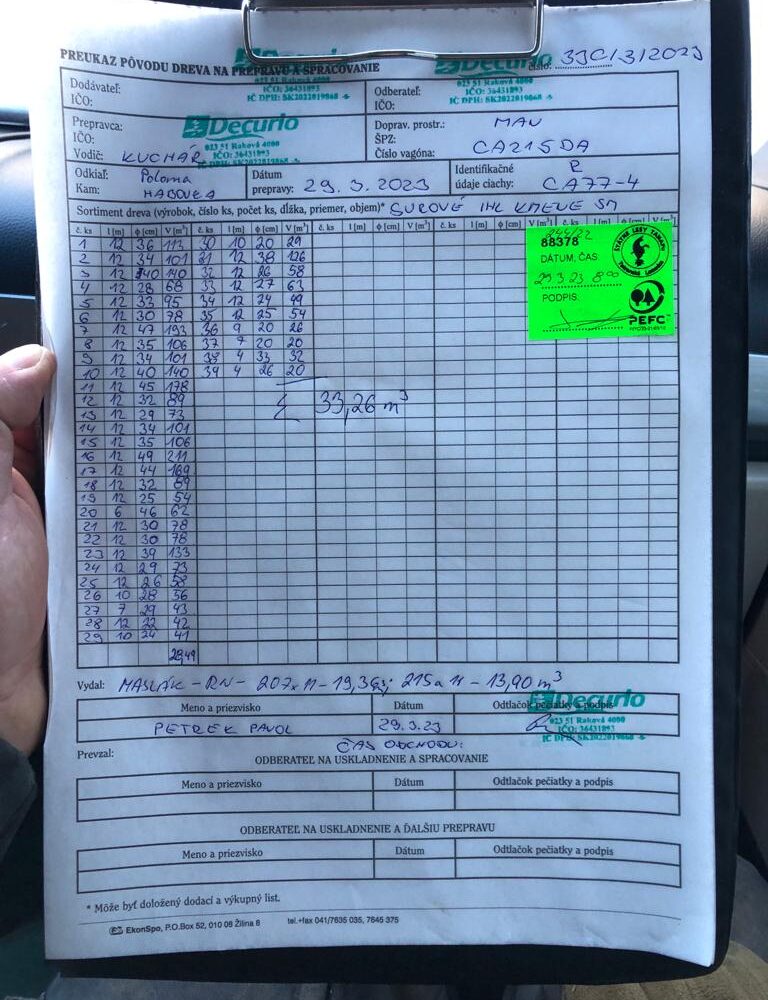 PREUKAZ PÔVODU DREVA NA PREPRAVU A SPRACOVANIE číslo: 33C/3/2023
Decurio
IČO: 36431893
IČ DPH: SK2022019868
Decurio
023 51 Raková 4000
IČO: 36431893
IČ DPH: SK2022019868
Dodávateľ:
IČO:
Odberateľ:
IČO:
Prepravca:
IČO:
Vodič: KUCHÁR
Decurio
023 51 Raková 4000
IČO: 36431893
Doprav. prostr.: MAN
ŠPZ:
Číslo vagóna: CA215DA
Odkiaľ: Poloma
Kam: HABOVKA
Dátum
prepravy: 29. 3. 2023
Identifikačné R
údaje ciachy: CA77-4
Sortiment dreva (výrobok, číslo ks, počet ks, dĺžka, priemer, objem)* SUROVÉ IHL KMENE SM
č. ks l [m] ϕ [cm] V [m³] č. ks l [m] ϕ [cm] V [m³] č. ks l [m] ϕ [cm] V [m³] č. ks l [m] ϕ [cm] V [m³] č. ks l [m] ϕ [cm] V [m³]
1 12 36 113 30 10 20 29
2 12 34 101 31 12 38 126
3 12 40 140 32 12 26 58
4 12 28 68 33 12 27 63
5 12 33 95 34 12 24 49
6 12 30 78 35 12 25 54
7 12 47 193 36 9 20 26
8 12 35 106 37 7 20 20
9 12 34 101 38 4 33 32
10 12 40 140 39 4 26 20
11 12 45 178
12 12 32 89
13 12 29 73
14 12 34 101
15 12 35 106
16 12 49 211
17 12 44 169
18 12 32 89
19 12 25 54
20 6 46 62
21 12 30 78
22 12 30 78
23 12 39 133
24 12 29 73
25 12 26 58
26 10 28 56
27 7 29 43
28 12 22 42
29 10 24 41
28,49
Σ 33,26 m³
244/22
88378
DÁTUM, ČAS:
29 3 23 8 00
PODPIS:
ŠTÁTNE LESY TANAPU
PEFC
Vydal: MASLÁK - RN - 207 11 - 19,36; 215a 11 - 13,90 m³
Meno a priezvisko Dátum Odtlačok pečiatky a podpis
PETREK PAVOL 29.3.23
Decurio
023 51 Raková 4000
IČO: 36431893
IČ DPH: SK2022019868
ČAS ODCHODU:
Prevzal:
ODBERATEĽ NA USKLADNENIE A SPRACOVANIE
Meno a priezvisko Dátum Odtlačok pečiatky a podpis
ODBERATEĽ NA USKLADNENIE A ĎALŠIU PREPRAVU
Meno a priezvisko Dátum Odtlačok pečiatky a podpis
* Môže byť doložený dodací a výkupný list.
EkonSpo, P.O.Box 52, 010 08 Žilina 8 tel.+fax 041/7635 035, 7645 375